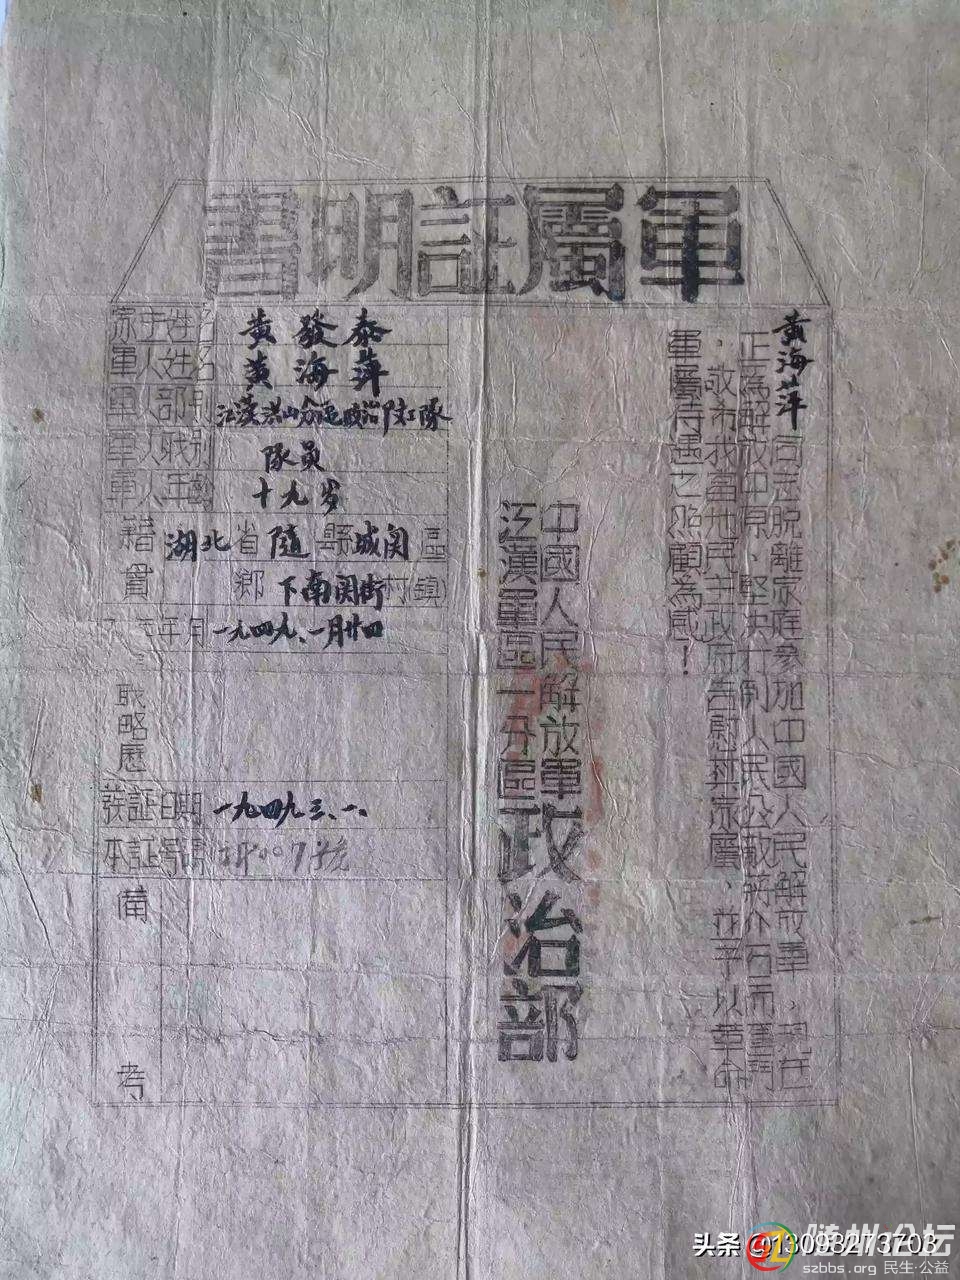 書明証屬軍
黃海萍同志脫離家庭參加中國人民解放軍，現在
正為解放中原、堅決打倒人民公敵蔣介石而奮鬥
，敬希我當地民主政府告慰其家屬，並予以革命
軍屬待遇之照顧為感！
中國人民解放軍
江漢軍區一分區政治部
家主姓名 黃發泰
軍人姓名 黃海萍
軍人部別 江漢洪山分區政治部文工隊
軍人職別 隊員
軍人年齡 十九岁
籍貫 湖北省隨縣城関區
鄉下南関街村鎮
年月 一九四九、一月廿四
略歷
發証日期 一九四九、三、一、
本証號碼
備考
头条 @13098273703
随州论坛
szbbs.org 民生·公益